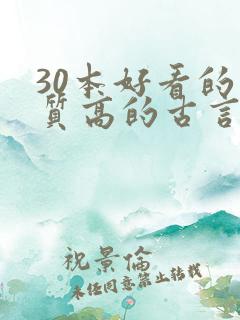 30本好看的
质高的古言
祝景倫
未任同意禁止转载